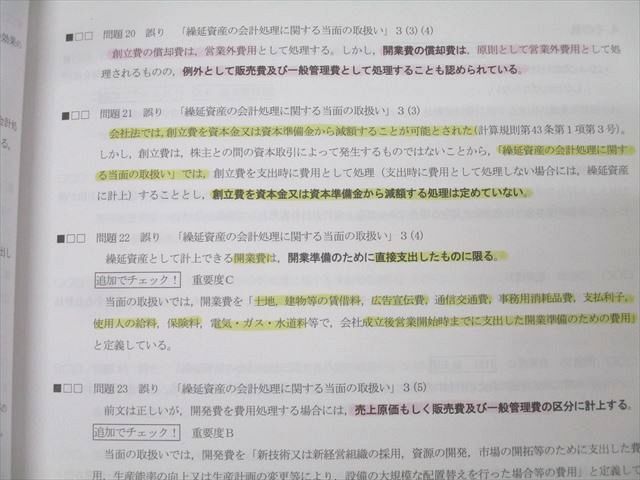 ■□□ 問題20 誤り 「繰延資産の会計処理に関する当面の取扱い」3(3)(4)
創立費の償却費は，営業外費用として処理する。しかし，開業費の償却費は，原則として営業外費用として処
理されるものの，例外として販売費及び一般管理費として処理することも認められている。
■□□ 問題21 誤り 「繰延資産の会計処理に関する当面の取扱い」3(3)
会社法では，創立費を資本金又は資本準備金から減額することが可能とされた(計算規則第43条第1項第3号)。
しかし，創立費は，株主との間の資本取引によって発生するものではないことから，「繰延資産の会計処理に関す
る当面の取扱い」では，創立費を支出時に費用として処理（支出時に費用として処理しない場合には，繰延資産
に計上）することとし，創立費を資本金又は資本準備金から減額する処理は定めていない。
■□□ 問題22 誤り 「繰延資産の会計処理に関する当面の取扱い」3(4)
繰延資産として計上できる開業費は，開業準備のために直接支出したものに限る。
追加でチェック！ 重要度C
当面の取扱いでは，開業費を「土地，建物等の賃借料，広告宣伝費，通信交通費，事務用消耗品費，支払利子，
使用人の給料，保険料，電気・ガス・水道料等で，会社成立後営業開始時までに支出した開業準備のための費用」
と定義している。
■□□ 問題23 誤り 「繰延資産の会計処理に関する当面の取扱い」3(5)
前文は正しいが，開発費を費用処理する場合には，売上原価もしく販売費及び一般管理費の区分に計上する。
追加でチェック！ 重要度B
当面の取扱いでは，開発費を「新技術又は新経営組織の採用，資源の開発，市場の開拓等のために支出した費
用，生産能率の向上又は生産計画の変更等により，設備の大規模な配置替えを行った場合等の費用」と定義して